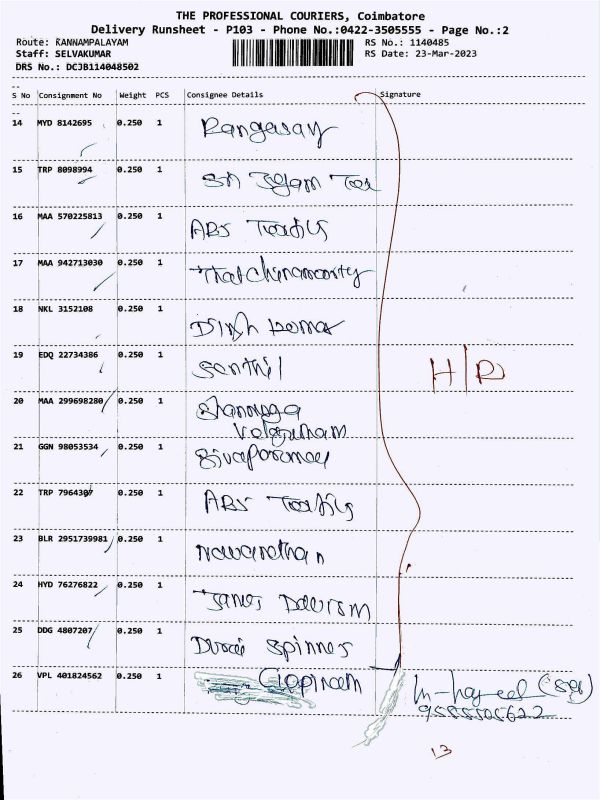 THE PROFESSIONAL COURIERS, Coimbatore
Delivery Runsheet - P103 - Phone No.:0422-3505555 - Page No.:2
Route: KANNAMPALAYAM RS No.: 1140485
Staff: SELVAKUMAR RS Date: 23-Mar-2023
DRS No.: DCJB114048502
S No Consignment No Weight PCS Consignee Details Signature
14 MYD 8142695 0.250 1 Rangasay
15 TRP 8098994 0.250 1 Sri
16 MAA 570225813 0.250 1 ABS
17 MAA 942713030 0.250 1 Thatchinamoorty
18 NKL 3152108 0.250 1
19 EDQ 22734386 0.250 1 Senthil
20 MAA 299698280 0.250 1 Shanmuga
21 GGN 98053534 0.250 1
22 TRP 7964307 0.250 1 ABS
23 BLR 2951739981 0.250 1
24 HYD 76276822 0.250 1 James
25 DDG 4807207 0.250 1 Durai Spinners
26 VPL 401824562 0.250 1 Gopinam
H/R
13